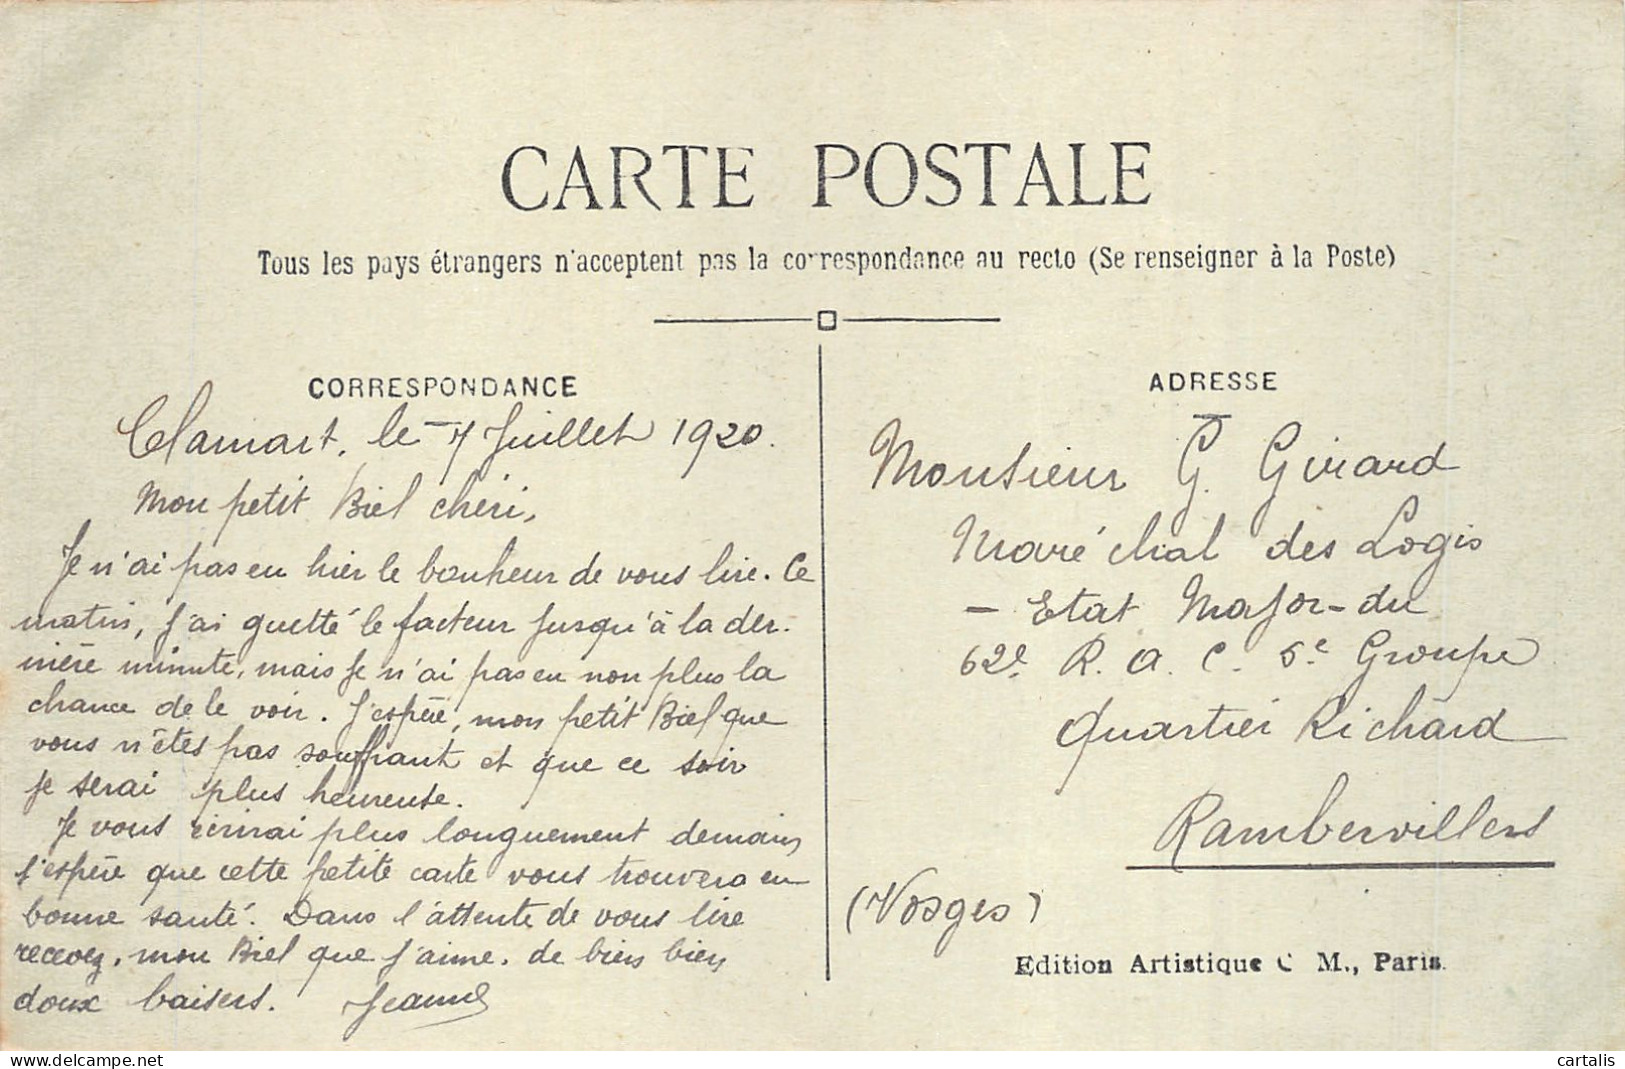 CARTE POSTALE
Tous les pays étrangers n'acceptent pas la correspondance au recto (Se renseigner à la Poste)
CORRESPONDANCE
Clamart, le 7 Juillet 1920.
Mon petit Biel chéri,
Je n'ai pas eu hier le bonheur de vous lire. Ce
matin, j'ai guetté le facteur jusqu'à la der-
nière minute, mais je n'ai pas eu non plus la
chance de le voir. J'espère, mon petit Biel que
vous n'êtes pas souffrant et que ce soir
je serai plus heureuse.
Je vous écrirai plus longuement demain
j'espère que cette petite carte vous trouvera en
bonne santé. Dans l'attente de vous lire
recevez, mon Biel que j'aime, de bien bien
doux baisers. Jeanne
ADRESSE
Monsieur G. Girard
Maréchal des Logis
- Etat Major - du
62e R. A. C. 5e Groupe
Quartier Richard
Rambervillers
(Vosges)
Edition Artistique C M., Paris.
https://www.delcampe.net
cartalis